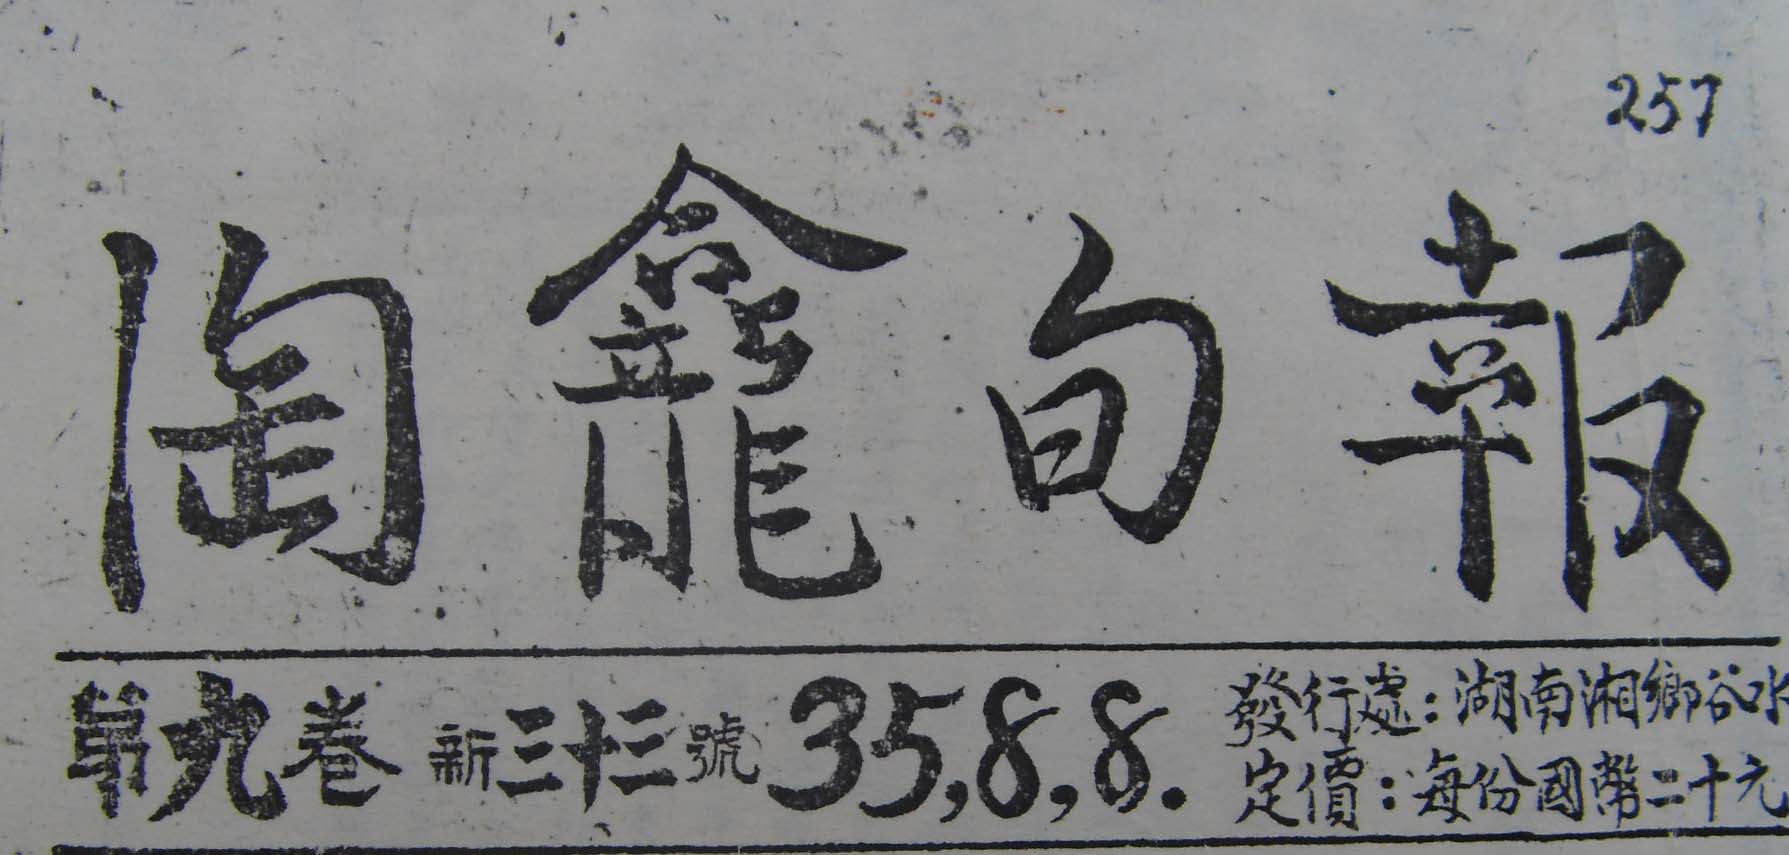 257
陶龕旬報
第九卷 新三十三號 35,8,8.
發行處：湖南湘鄉谷水
定價：每份國幣二十元